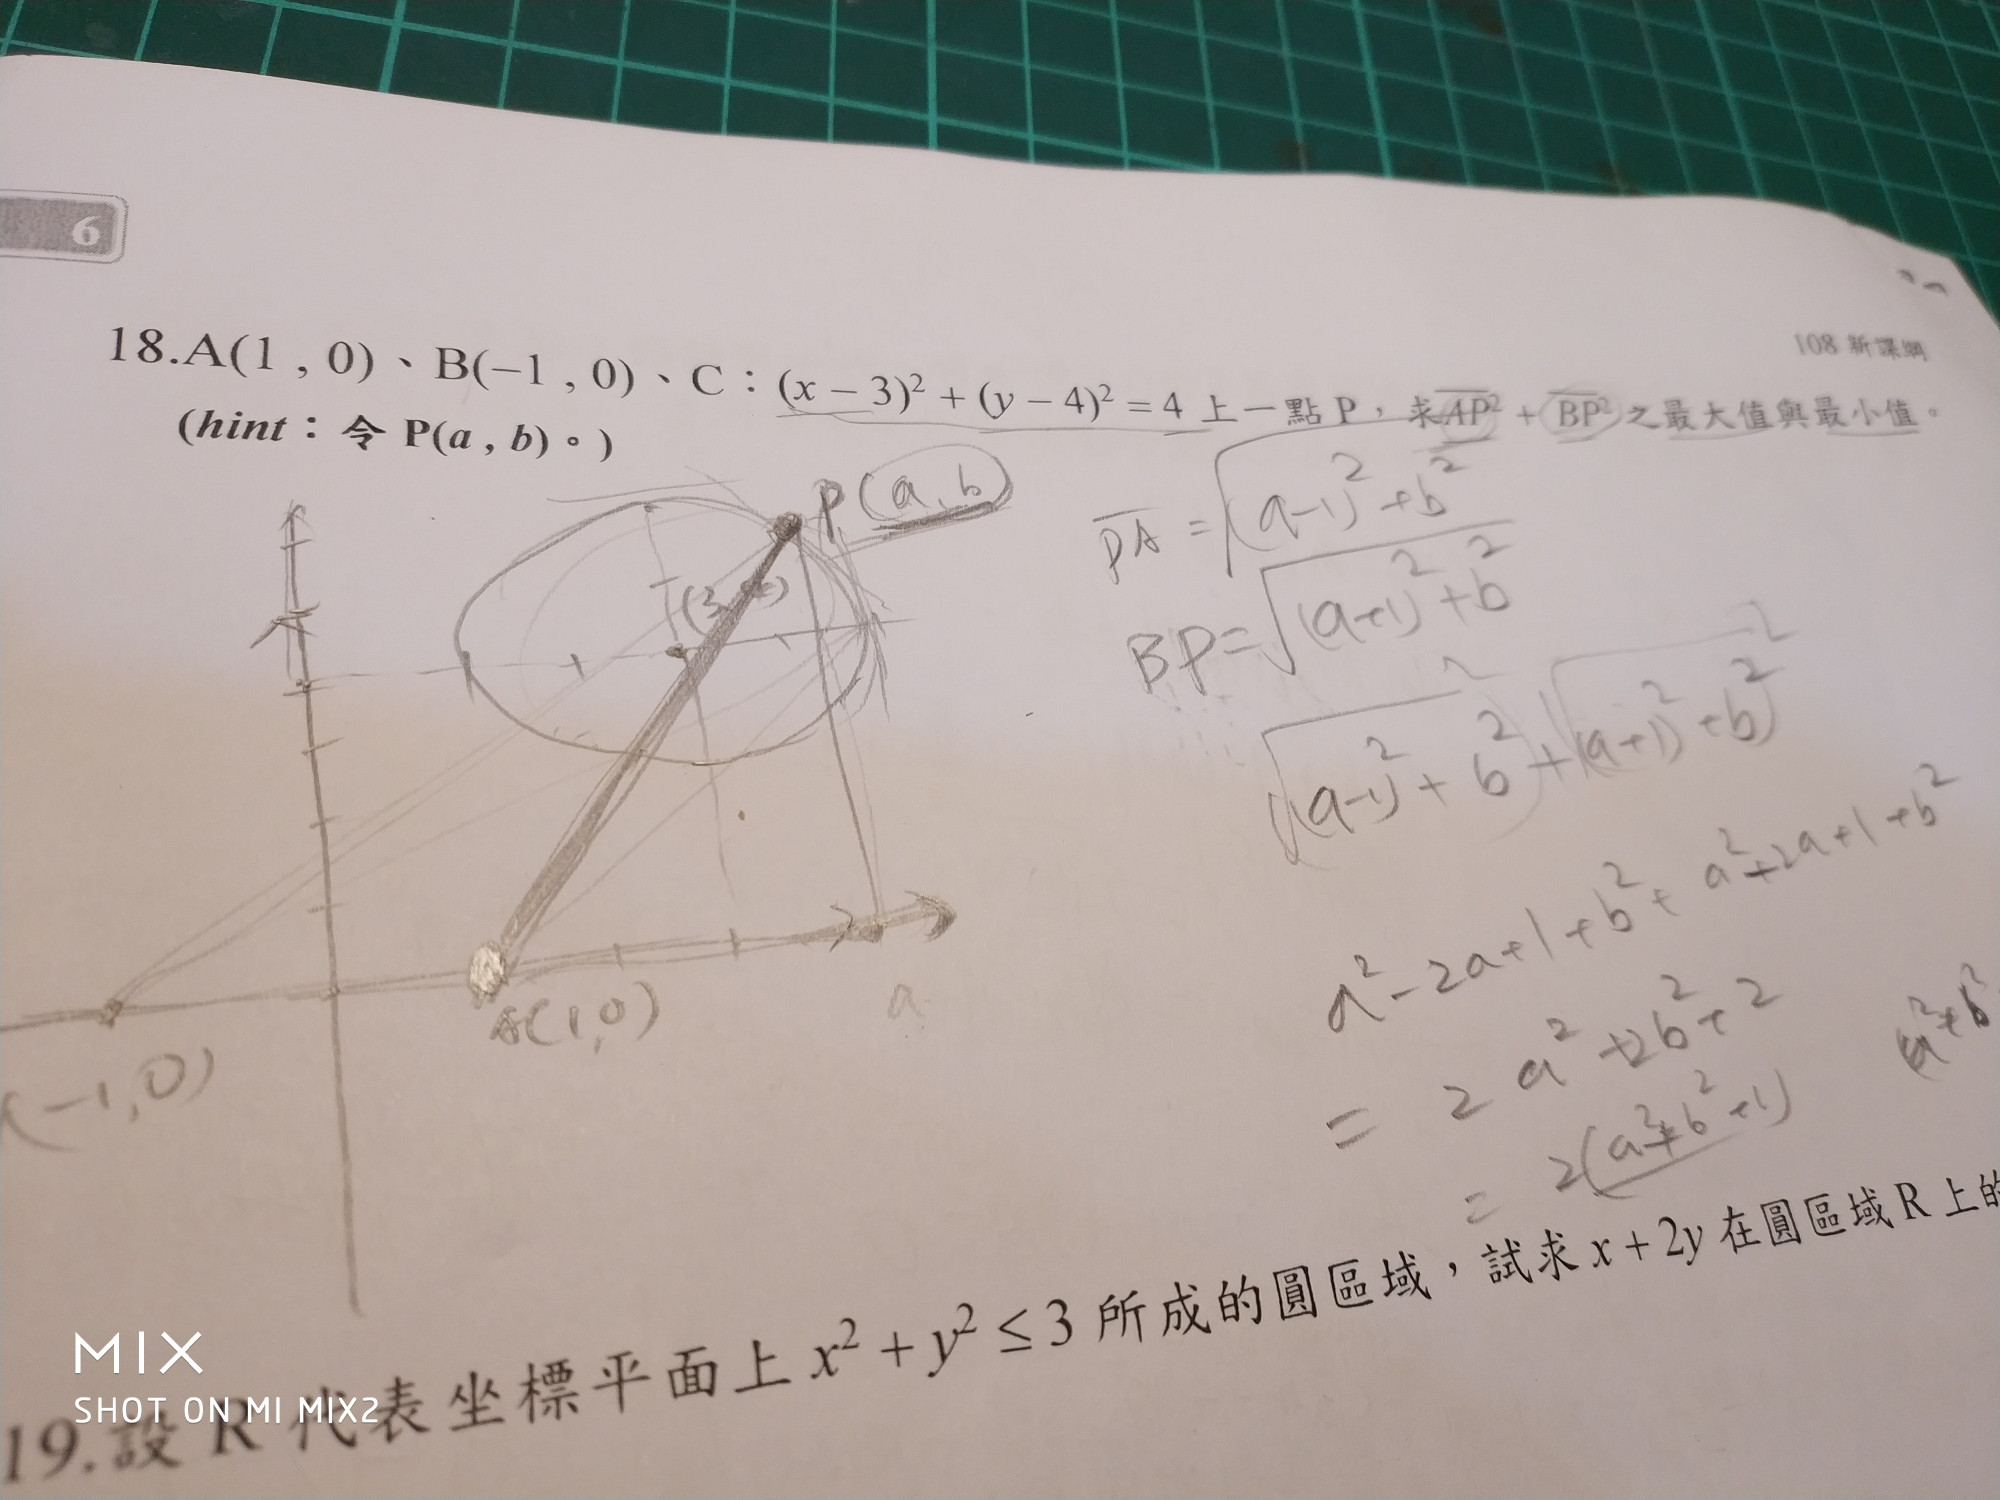 6
108 新課綱
18.A(1 , 0)、B(−1 , 0)、C：(x − 3)² + (y − 4)² = 4 上一點 P，求 AP² + BP² 之最大值與最小值。
(hint：令 P(a , b)。)
P(a, b)
PA = √(a-1)²+b²
BP = √(a+1)²+b²
√(a-1)²+b² ² + √(a+1)²+b² ²
a²-2a+1+b²+a²+2a+1+b²
= 2a²+2b²+2
= 2(a²+b²+1)
a²+b²
A(1,0)
a
(-1,0)
19.設 R 代表坐標平面上 x² + y² ≤ 3 所成的圓區域，試求 x + 2y 在圓區域 R 上的
MIX
SHOT ON MI MIX2